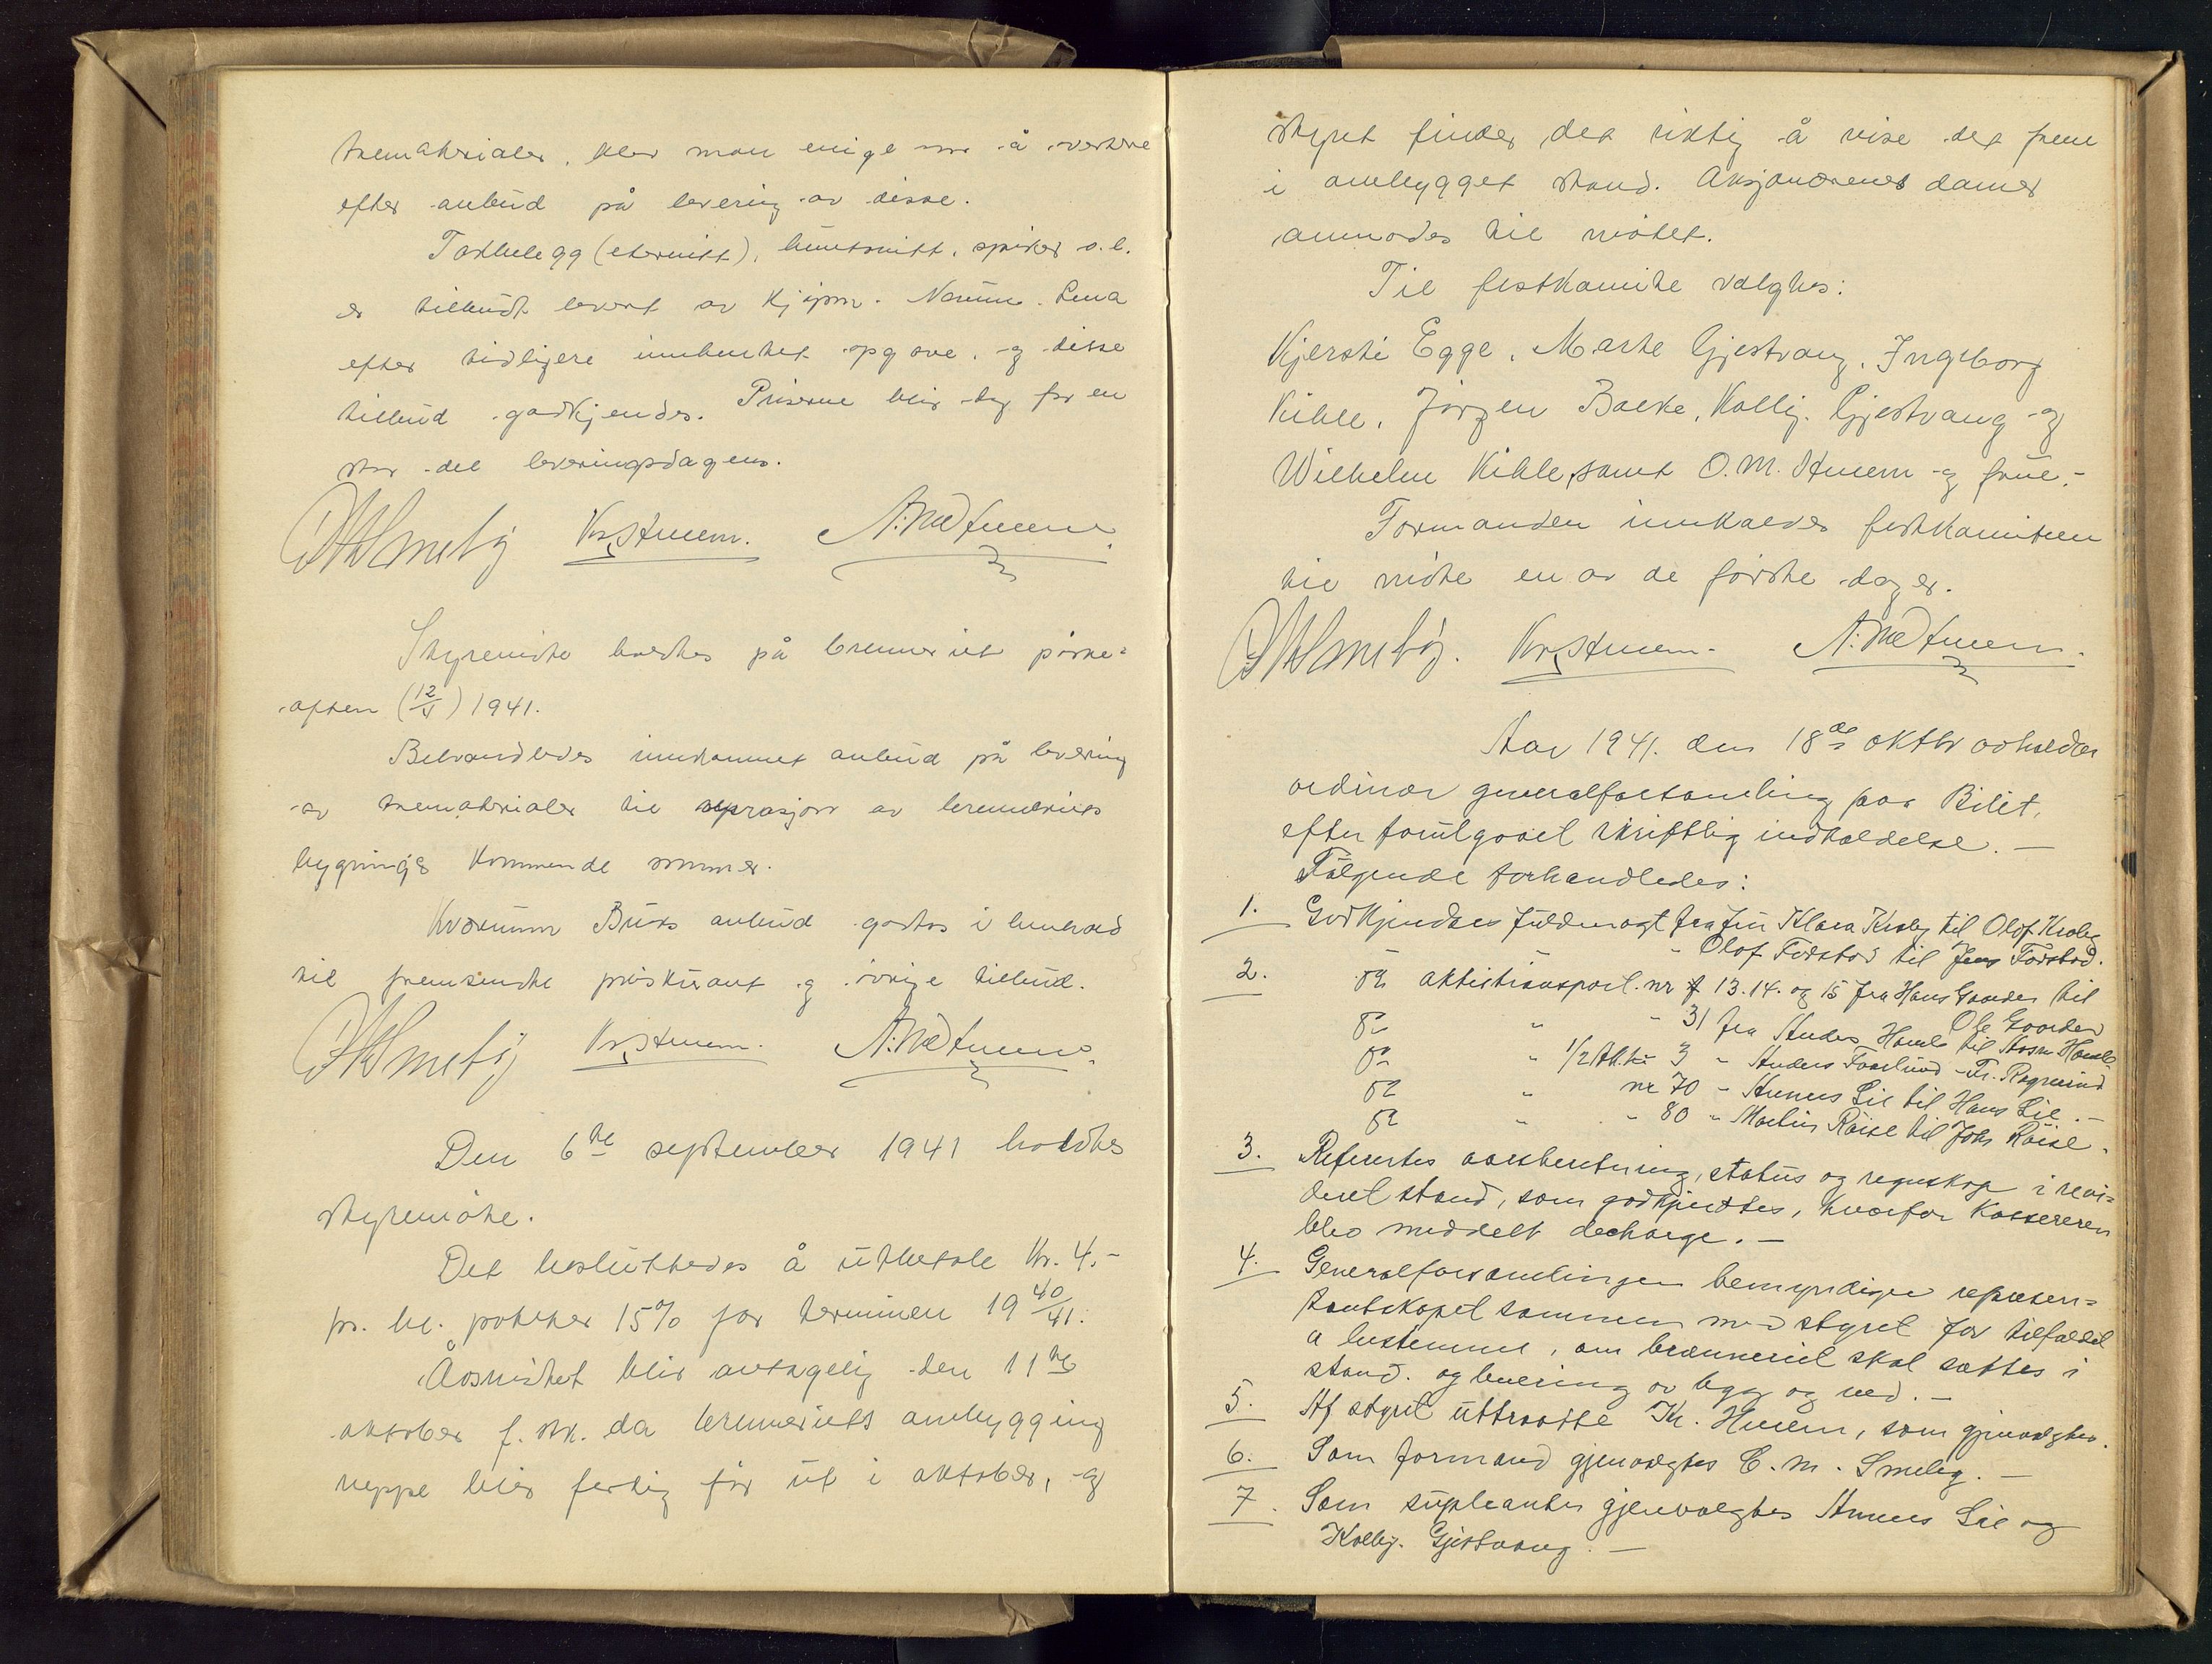 trematerialer, blev man enige om å avertere
efter anbud på levering av disse.
Taktelegg (eternitt), limtsnitt, spiker o.l.
er tilbudt levert av Kjøpm. Narum. Lena
efter tidligere innhentet opgave, og disse
tilbud godkjendes. Priserne blir dog for en
stor del leveringsdagens.
CMSmeby Kr. Huem. A. Nedtuen.
Styremöte holdtes på brenneriet påske=
aften (12/4) 1941.
Behandledes innkommet anbud på levering
av trematerialer til reprasjon av brenneriets
bygninger kommende sommer.
Kværnum Bruks anbud godtas i henhold
til fremsendte priskurant og övrige tilbud.
CMSmeby Kr. Huem. A. Nedtuen.
Den 6te september 1941 holdtes
styremöte.
Det besluttedes å utbetale Kr. 4.-
pr. hl. poteter 15% for terminen 19 40/41.
Årsmötet blir antagelig den 11te
oktober f. stk. da brenneriets ombygging
neppe blir ferdig för ut i oktober, og
styret finder det riktig å vise det frem
i ombygget stand. Aksjonærenes damer
anmodes til mötet.
Til festkomite valgtes:
Kjersti Egge, Marte Gjestvang, Ingeborg
Kihle, Jörgen Bakke, Kolbj. Gjestvang og
Wilhelm Kihle, samt O.M. Huem og frue.-
Formanden innkalder festkomiteen
til möte en av de förste dager.
CMSmeby. Kr. Huem. A. Nedtuen.
Aar 1941. den 18de oktbr avholdtes
ordinær generalforsamling paa Bilit,
efter forutgaael skriftlig indkaldelse. —
Følgende forhandledes:
1. Godkjendtes fuldmagt fra fru Klara Kraby til Olof Kraby
" Olof Fodstad til Jens Fodstad.
2. do aktietransport. nr 13. 14. og 15 fra Hans Gaarder til
Ole Gaarder
do " " 31 fra
do " 1/2 Akti 3 " Anders Faarlund - Fr. Rognerud
do " nr 70 - Hennes Lie til Hans Lie. —
do " " 80 " Martin Röise til Johs Röise.
3. Refertes aarsberetning, status og regnskap i revi=
deret stand, som godkjendtes, hvorfor Kassereren
blev meddelt decharge. —
4. Generalforsamlingen bemyndiger represen=
tantskapet sammen med styret for tilfældet
a bestemme, om brænneriet skal sættes i
stand. og levering av bygg og ved. —
5. Af styret uttraatte Kr. Huem, som gjenvalgtes.
6. Som formand gjenvalgtes C. M. Smeby. —
7. Som supleanter gjenvalgtes Hennes Lie og
Kolbj. Gjestvang. —